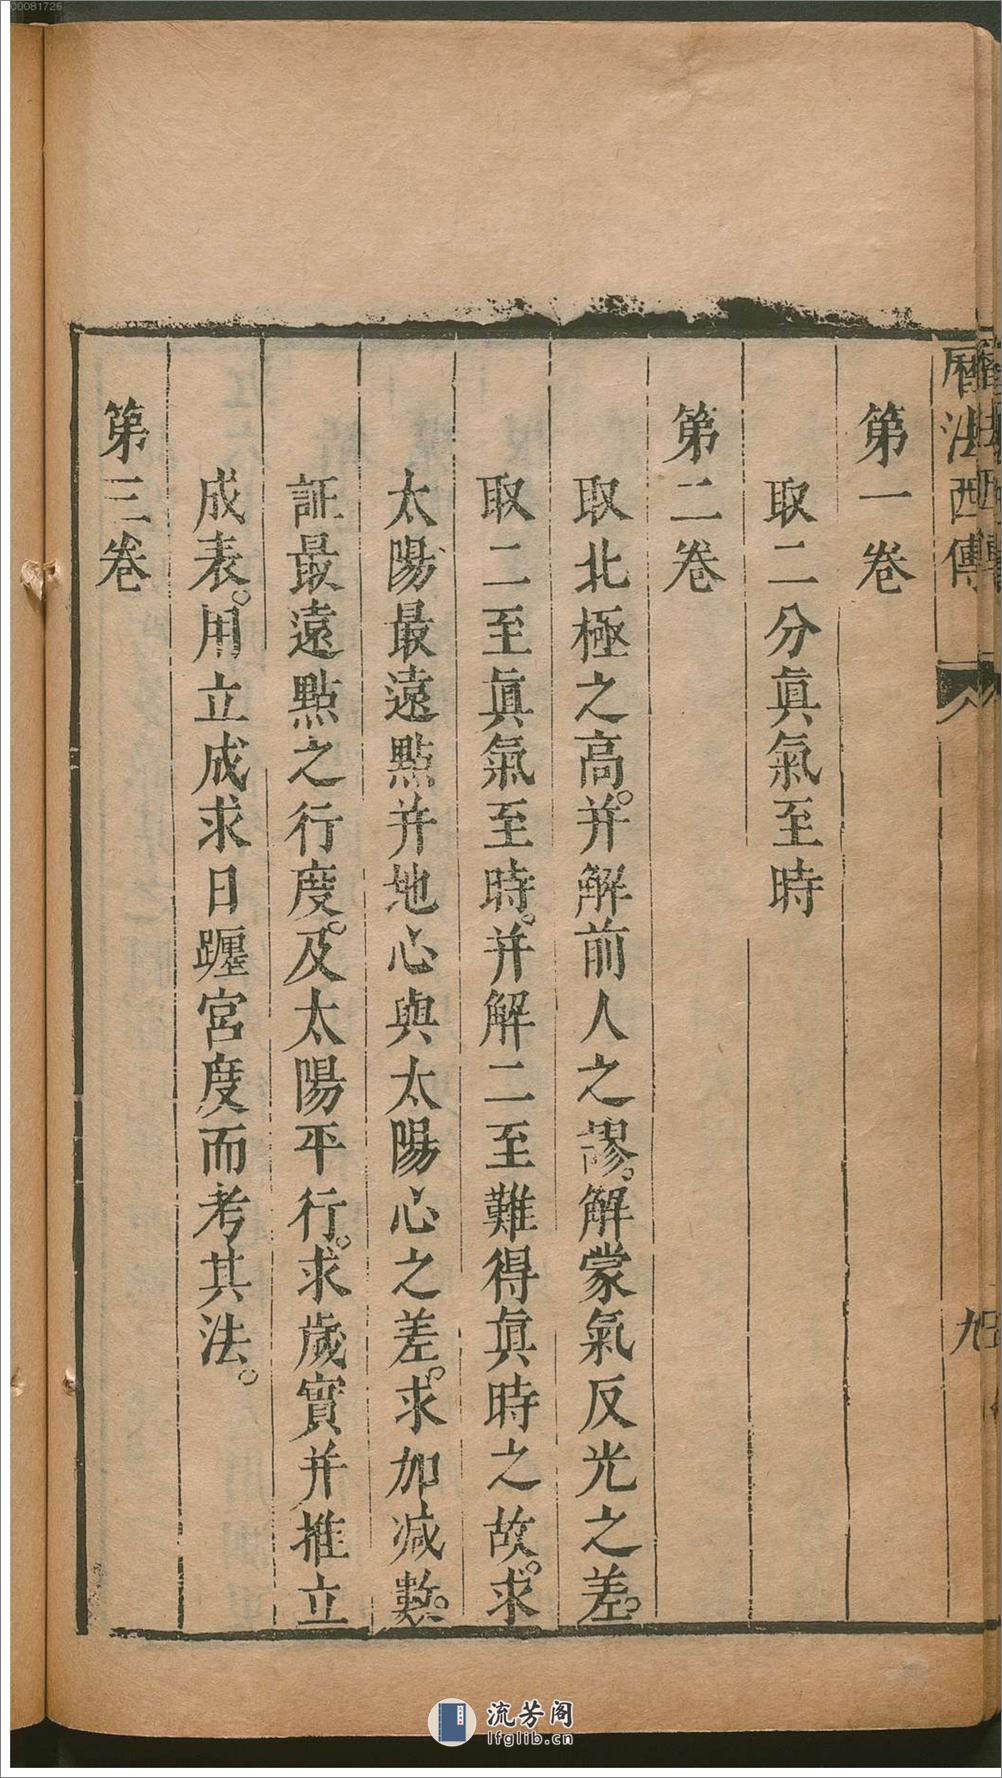 00081726
曆法西傳
九
第一卷
取二分眞氣至時
第二卷
取北極之高。并解前人之謬。解蒙氣反光之差。
取二至眞氣至時。并解二至難得眞時之故。求
太陽最遠點并地心與太陽心之差。求加減數。
証最遠點之行度。及太陽平行。求歲實并推立
成表。用立成求日躔宮度而考其法。
第三卷
流芳阁
lfglib.cn